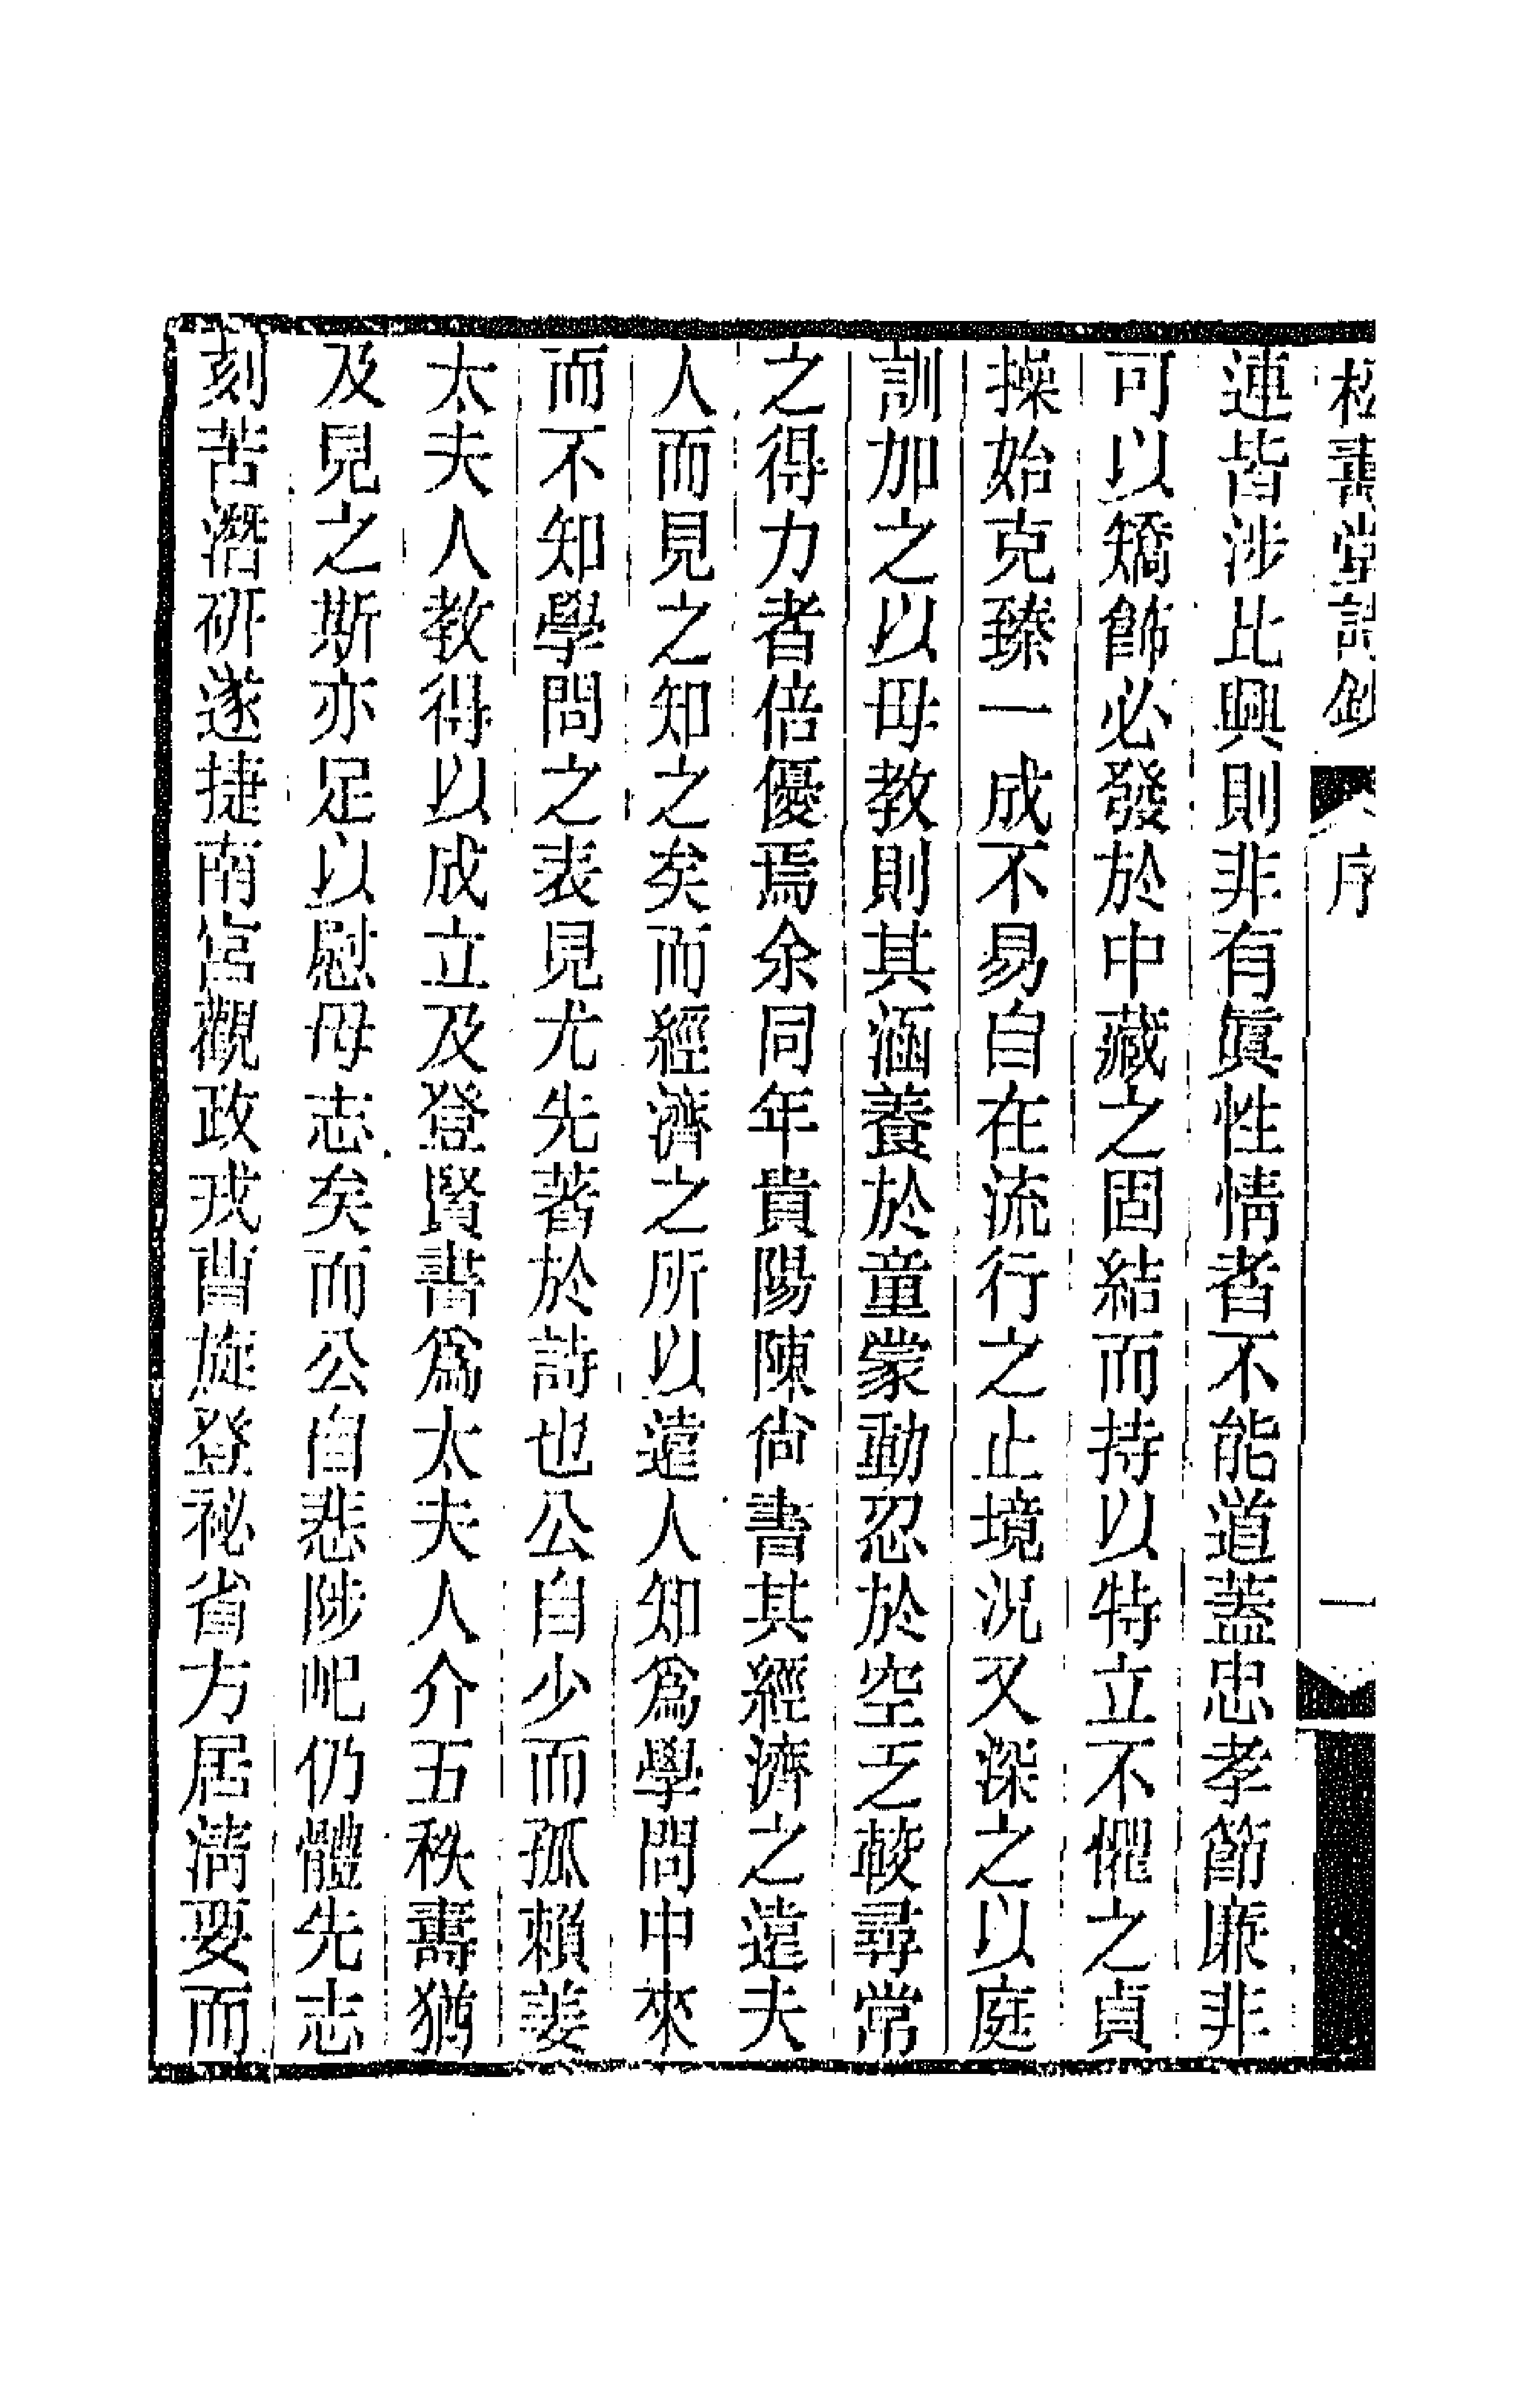 松壽堂詩鈔 序 一
連皆涉比興則非有眞性情者不能道蓋忠孝節廉非
可以矯飾必發於中藏之固結而持以特立不懼之貞
操始克臻一成不易自在流行之止境況又深之以庭
訓加之以母教則其涵養於童蒙動忍於空乏較尋常
之得力者倍優焉余同年貴陽陳尙書其經濟之遠夫
人而見之知之矣而經濟之所以遠人知爲學問中來
而不知學問之表見尤先著於詩也公自少而孤賴姜
太夫人教得以成立及登賢書爲太夫人介五秩壽猶
及見之斯亦足以慰母志矣而公自悲陟屺仍體先志
刻苦潛研遂捷南宮觀政戎曹旋登祕省方居淸要而